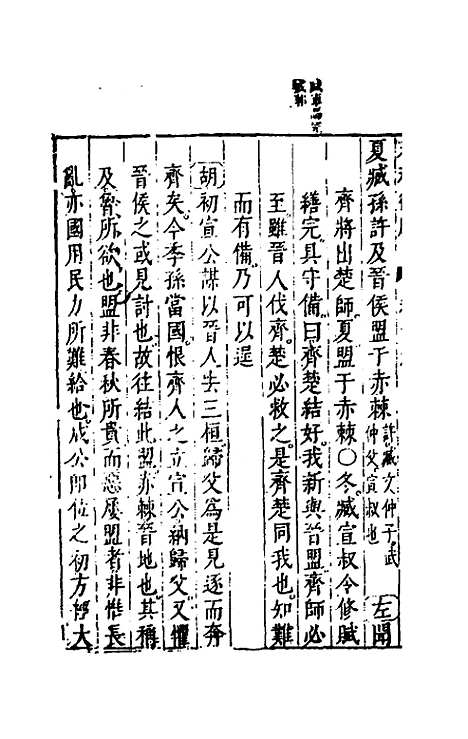 夏臧孫許及晉侯盟于赤棘許臧文仲子武仲父宣叔也左聞
齊將出楚師夏盟于赤棘○冬臧宣叔令修賦
繕完具守備曰齊楚結好我新與晉盟齊師必
至雖晉人伐齊楚必救之是齊楚同我也知難
而有備乃可以逞
胡初宣公謀以晉人去三桓歸父為是見逐而奔
齊矣今季孫當國恨齊人之立宣公納歸父又懼
晉侯之或見討也故往結此盟赤棘晉地也其稱
及魯所欲也盟非春秋所貴而惡屢盟者非惟長
亂亦國用民力所難給也成公即位之初方㬰大